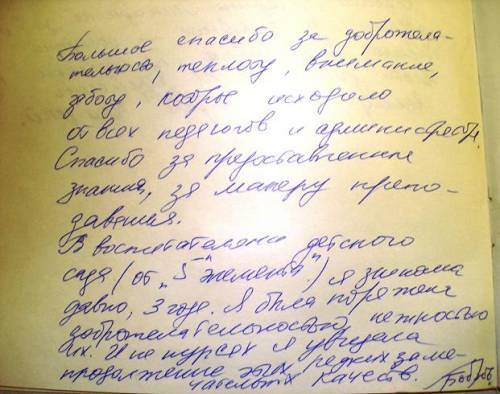 Большое спасибо за доброжела-
тельность, теплоту, внимание,
заботу, которые исходило
от всех педагогов и администрации.
Спасибо за предоставленные
знания, за манеру препо-
давания.
В воспитателями детского
сада (от "5 элемента") я знакома
давно, 3 года. Я была поражена
доброжелательностью нежностью
их. И на курсах я увидела
продолжение этих редких заме-
чательных качеств.